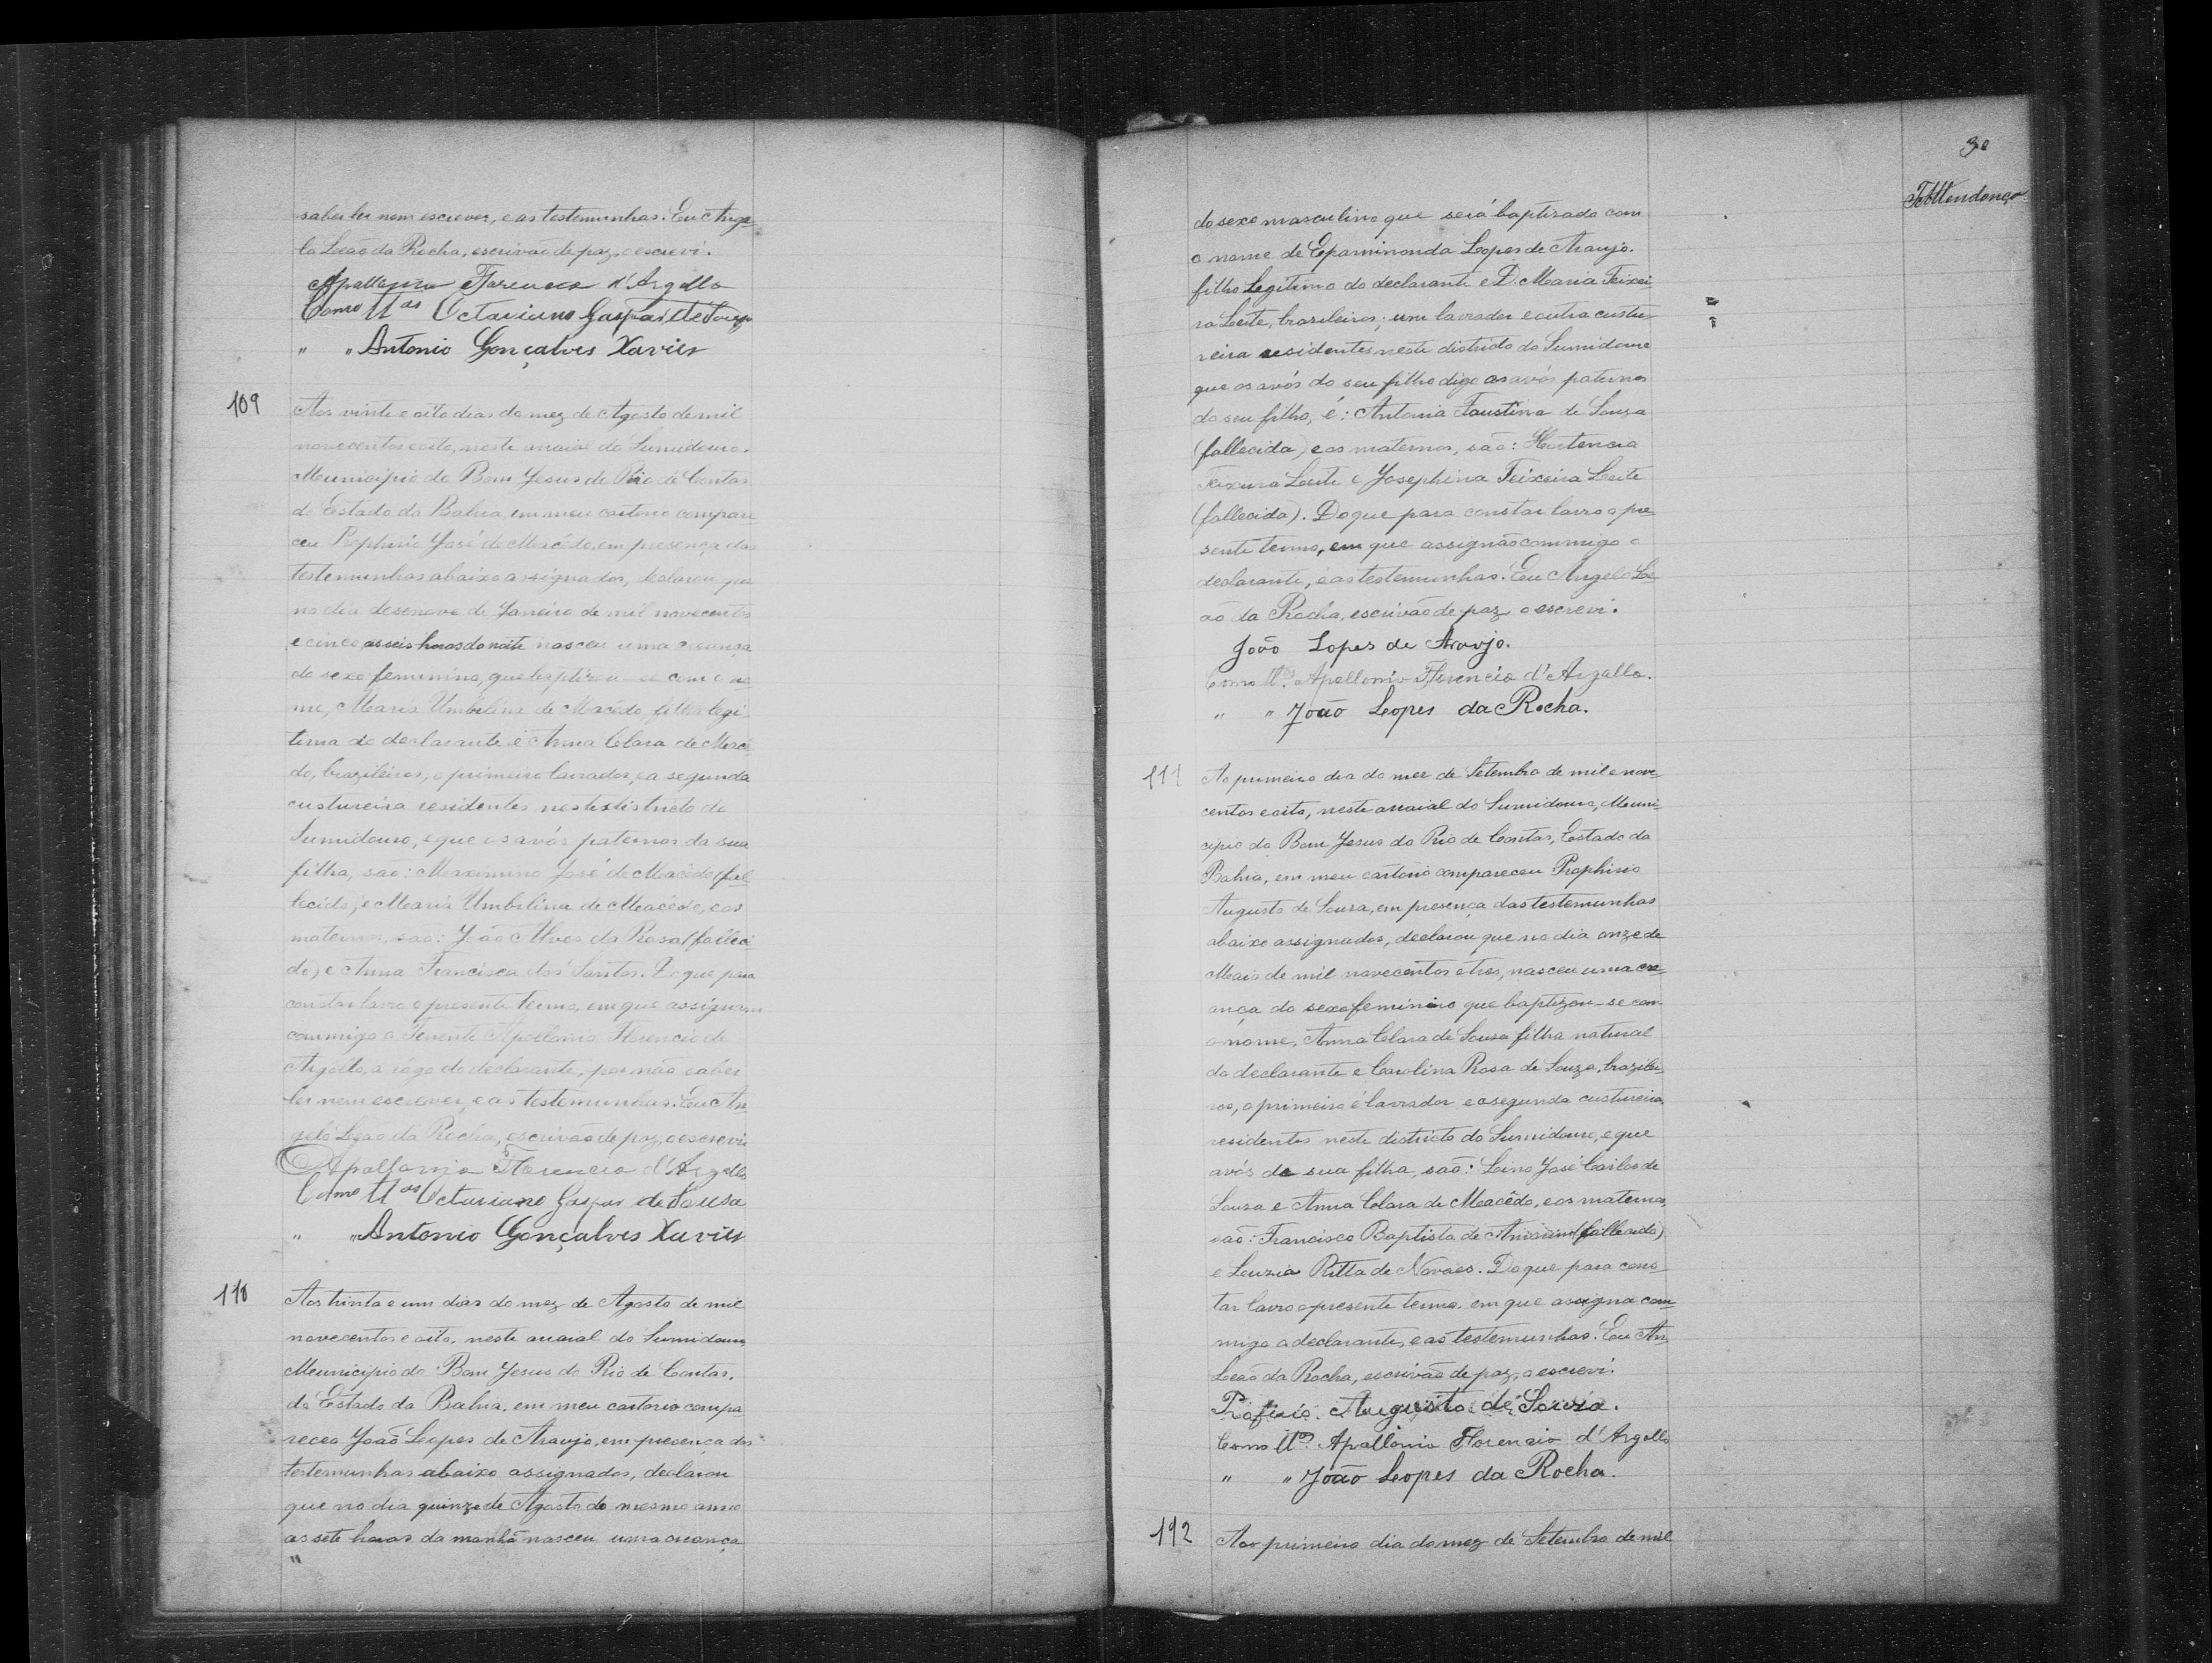 saber ler nem escrever, e as testemunhas. Eu Ange-
lo Leão da Rocha, escrivão de paz, o escrevi.
Apollonio Florencio d'Argollo
Como Tas Octaviano Gaspar de Souza
" " Antonio Gonçalves Xavier
109
Aos vinte e oito dias do mez de Agosto de mil
novecentos e oito, neste arraial do Sumidouro.
Municipio do Bom Jesus do Rio de Contas
do Estado da Bahia, em meu cartorio compare-
ceu Prophirio José de Macêdo, em presença das
testemunhas abaixo assignados, declarou que
no dia desenove de Janeiro de mil novecentos
e cinco as seis horas da noite nasceu uma creança
do sexo feminino, que baptizou-se com o no-
me, Maria Umbilina de Macêdo, filha legi-
tima do declarante e Anna Clara de Macê-
do, brazileiros, o primeiro lavrador, e a segunda
custureira residentes neste districto do
Sumidouro, e que os avós paternos da sua
filha, são: Maximino José de Macêdo (fal-
lecido), e Maria Umbilina de Macêdo, e os
maternos, são: João Alves da Rosa (falleci-
do) e Anna Francisca dos Santos. Do que para
constar lavro o presente termo, em que assignam
commigo o Tenente Apollonio Florencio de
Argollo, a rôgo do declarante, por não saber
ler nem escrever, e as testemunhas. Eu An-
gelo Leão da Rocha, escrivão de paz, o escrevi.
Apollonio Florencio d'Argollo
Como Tas Octaviano Gaspar de Sousa
" " Antonio Gonçalves Xavier
110
Aos trinta e um dias do mez de Agosto de mil
novecentos e oito, neste arraial do Sumidouro,
Municipio do Bom Jesus do Rio de Contas,
do Estado da Bahia, em meu cartorio compa-
receo João Lopes de Araujo, em presença das
testemunhas abaixo assignados, declarou
que no dia quinze de Agosto do mesmo anno
as sete horas da manhã nasceu uma creança
"
30
do sexo masculino que será baptizado com
o nome de Epaminonda Lopes de Araujo.
filho Legitimo do declarante e D. Maria Teixei-
ra Leite, brazileiros; um lavrador e outra custu-
reira residentes neste districto do Sumidouro
que os avós do seu filho digo os avós paternos
do seu filho, é: Antonia Faustina de Souza
(fallecida) e os maternos, são: Hortencia
Teixeira Leite e Josephina Teixeira Leite
(fallecida). Do que para constar lavro o pre-
sente termo, em que assignão commigo o
declarante, e as testemunhas. Eu Angelo Le-
ão da Rocha, escrivão de paz, o escrevi.
João Lopes de Araujo.
Como Tas Apollonio Florencio d'Argollo.
" " João Lopes da Rocha.
111
Ao primeiro dia do mez de Setembro de mil e nove-
centos e oito, neste arraial do Sumidouro, Muni-
cipio do Bom Jesus do Rio de Contas, Estado da
Bahia, em meu cartorio compareceu Prophirio
Augusto de Souza, em presença das testemunhas
abaixo assignados, declarou que no dia onze de
Maio de mil novecentos e tres, nasceu uma cre-
ança do sexo feminino que baptizou-se com
o nome, Anna Clara de Souza filha natural
do declarante e Carolina Rosa de Souza, brazilei-
ros, o primeiro é lavrador e a segunda custureira,
residentes neste districto do Sumidouro, e que
avós de sua filha, são: Lino José Carlos de
Souza e Anna Clara de Macêdo, e os maternos,
são: Francisco Baptista de (fallecido)
e Leuzia Ritta de Novaes. Do que para cons-
tar lavro o presente termo, em que assigna com-
migo o declarante, e as testemunhas. Eu An-
Leão da Rocha, escrivão de paz, o escrevi.
Profirio Augusto de Souza.
Como Tas Apollonio Florencio d'Argollo
" " João Lopes da Rocha.
112
Ao primeiro dia do mez de Setembro de mil